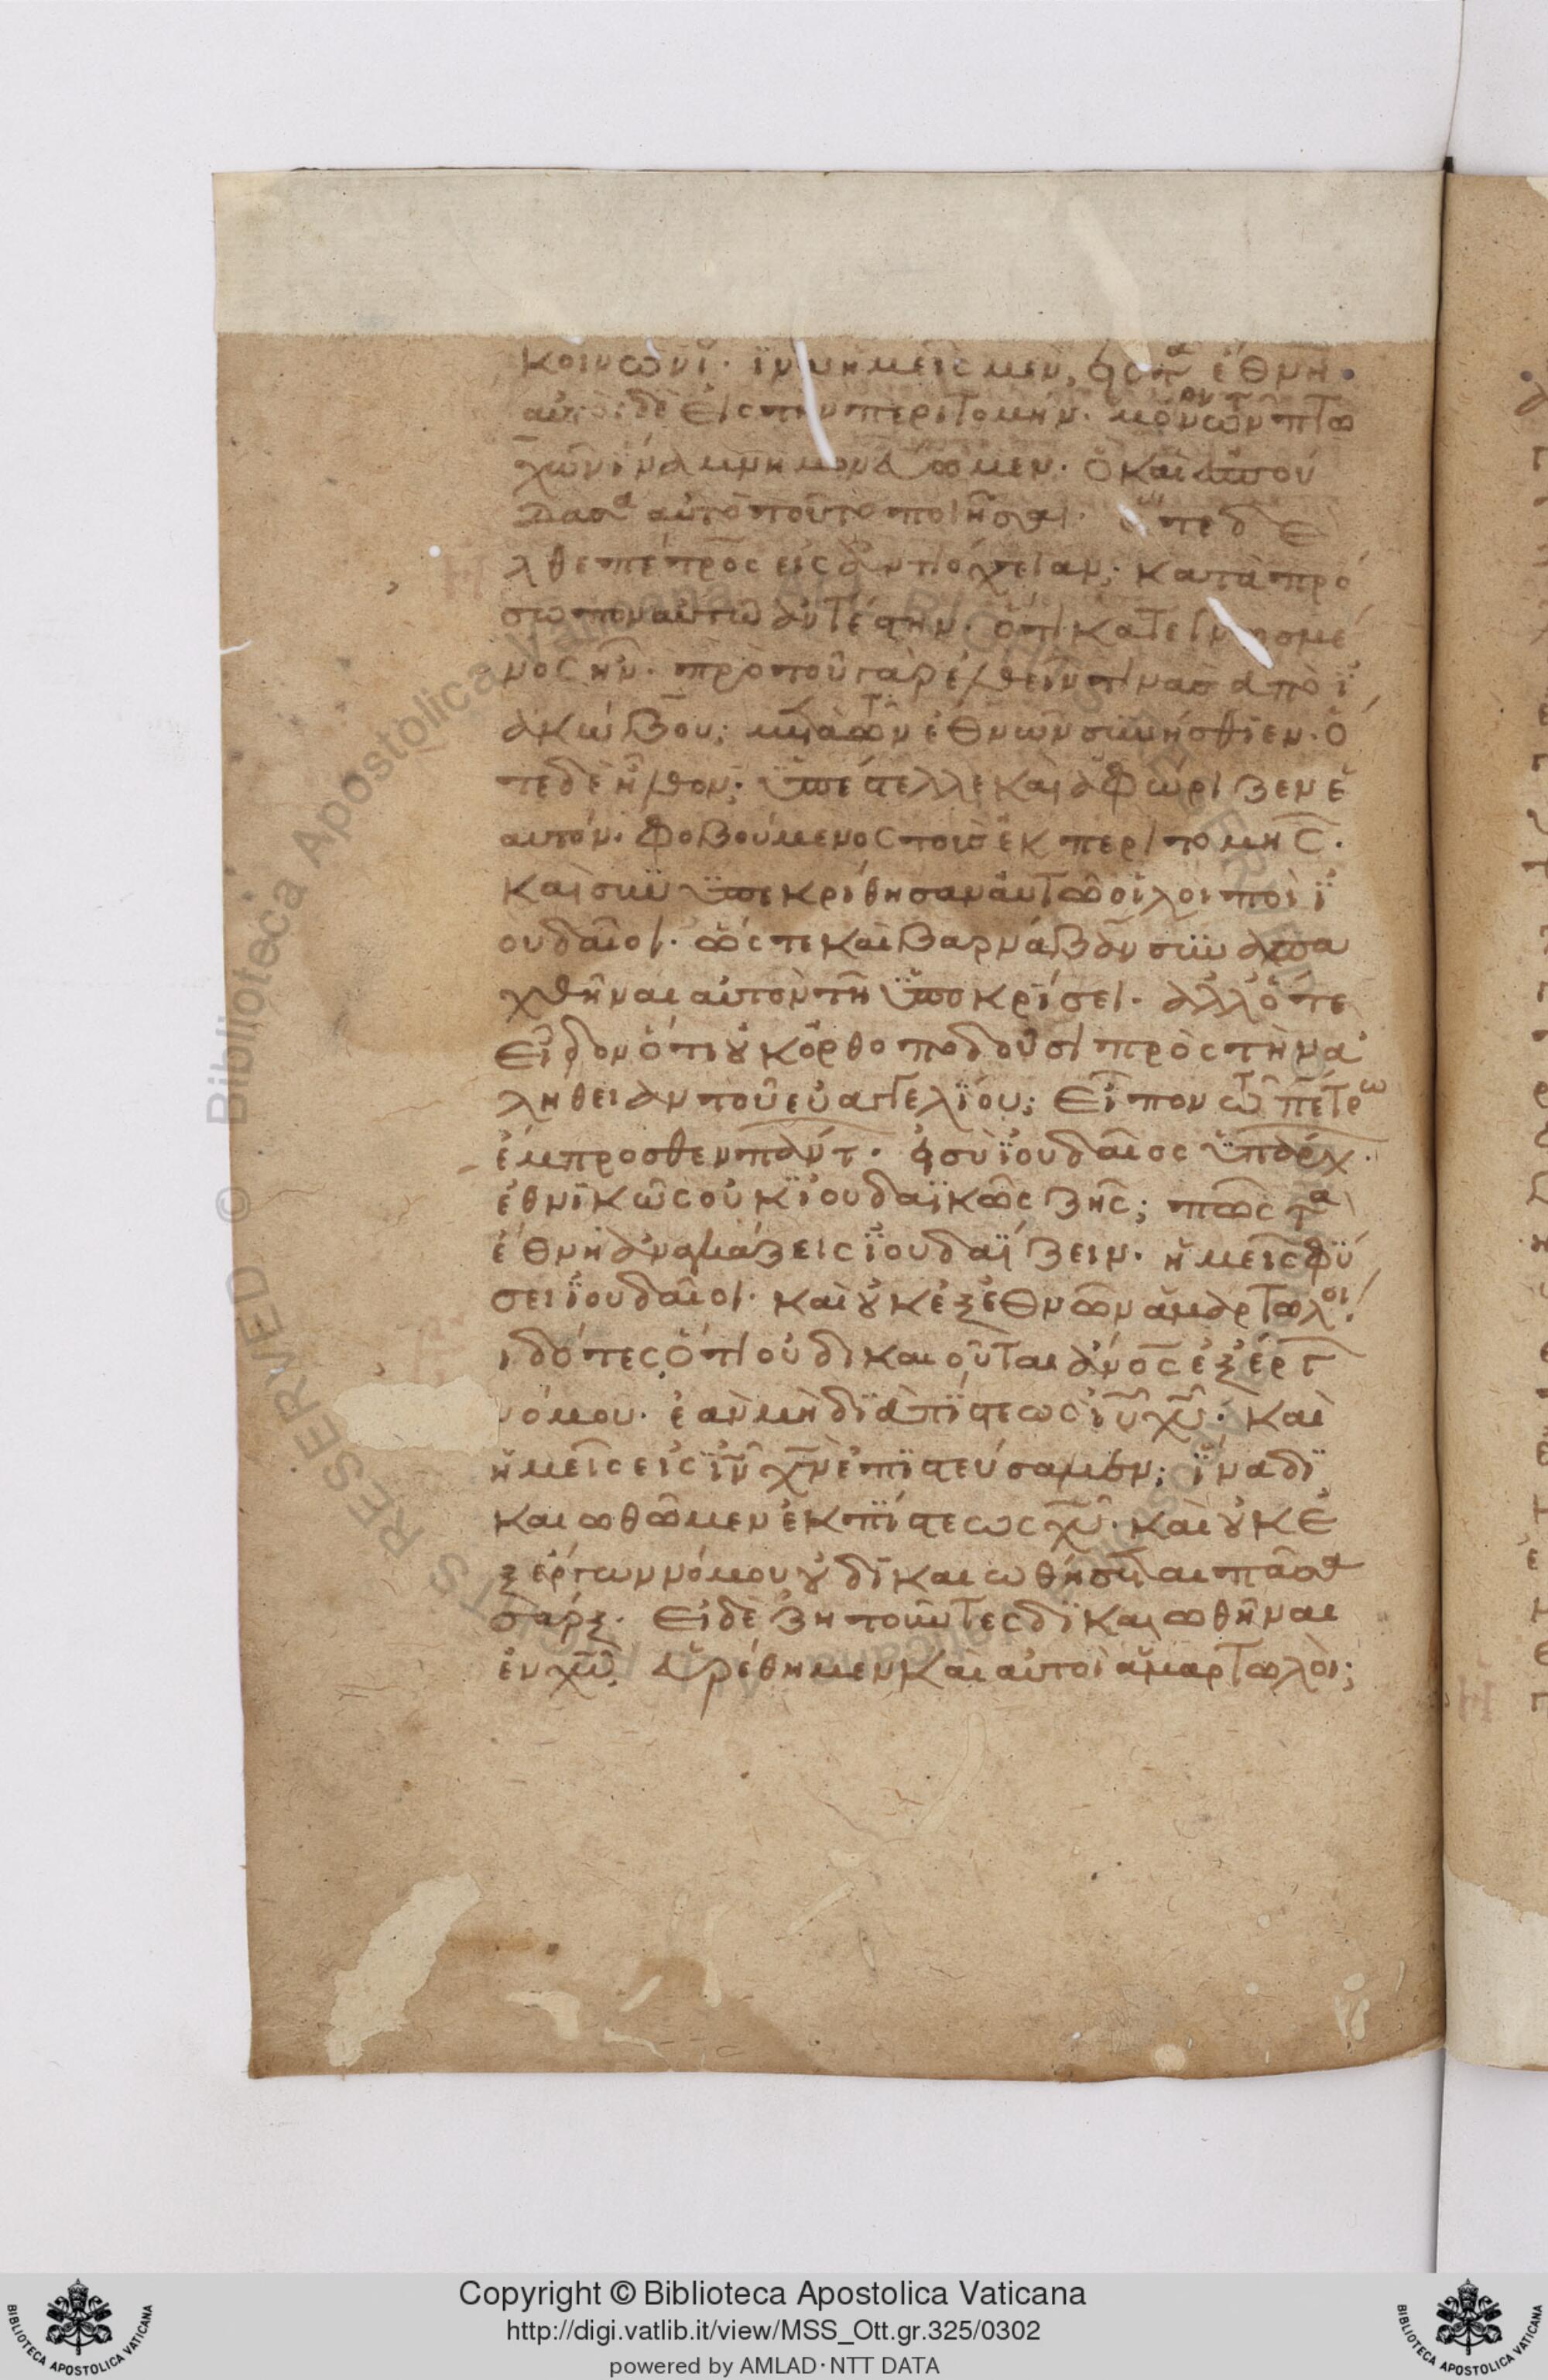 κοινωνί· ἵν ἡμεῖς μὲν, εἰς τὰ ἔθνη·
αὐτοὶ δὲ εἰς τὴν περιτομήν· μόνον τῶν πτω
χῶν ἵνα μνημονεύωμεν· ὃ καὶ ἐσπού
δασα αὐτὸ τοῦτο ποιῆσαι· ὅτε δὲ ἦ
λθε πέτρος εἰς ἀντιόχειαν; κατὰ πρό
σωπον αὐτῶ ἀντέστην· ὅτι κατεγνωσμέ
νος ἦν· πρὸ τοῦ γὰρ ἐλθεῖν τινὰς ἀπὸ ϊ
ακώβου; μετὰ τῶν ἐθνῶν συνήσθιεν· ὅ
τε δὲ ἦλθον; ὑπέστελλε καὶ ἀφώριζεν ἑ
αυτόν· φοβούμενος τοὺς ἐκ περιτομῆς·
καὶ συνυπεκρίθησαν αὐτῶ οἱ λοιποὶ ϊ
ουδαῖοι· ὥστε καὶ βαρνάβαν συναπα
χθῆναι αὐτῶν τῆ ὑποκρίσει· ἀλλ ὅτε
εἶδον ὅτι οὐκ ὀρθοποδοῦσι πρὸς τὴν ἀ
λήθειαν τοῦ εὐαγγελίου; εἶπον τῶ πέτρω
ἔμπροσθεν πάντ· εἰ σὺ ϊουδαῖος ὑπάρχ·
ἐθνικῶς οὐκ ϊουδαϊκῶς ζῆς; πῶς τὰ
ἔθνη ἀναγκάζεις ϊουδαΐζειν· ἡμεῖς φύ
σει ϊουδαῖοι· καὶ οὐκ ἐξ ἐθνῶν ἁμαρτωλοί·
ιδότες ὅτι οὐ δικαιοῦται ἄνος ἐξ ἔργ
νόμου· ἐὰν μὴ διὰ πίστεως ἰῦ χῦ· καὶ
ἡμεῖς εἰς ἰν χν ἐπιστεύσαμεν; ἵνα δι
καιωθῶμεν ἐκ πίστεως χῦ· καὶ οὐκ ἐ
ξ ἔργων νόμου οὐ δικαιωθήσεται πᾶσα
σάρξ· εἰ δὲ ζητοῦντες δικαιωθῆναι
ἐν χῶ, εὑρέθημεν καὶ αὐτοὶ ἁμαρτωλοὶ;
© Biblioteca Apostolica Vaticana
Copyright © Biblioteca Apostolica Vaticana
http://digi.vatlib.it/view/MSS_Ott.gr.325/0302
powered by AMLAD·NTT DATA
BIBLIOTECA APOSTOLICA VATICANA
BIBLIOTECA APOSTOLICA VATICANA